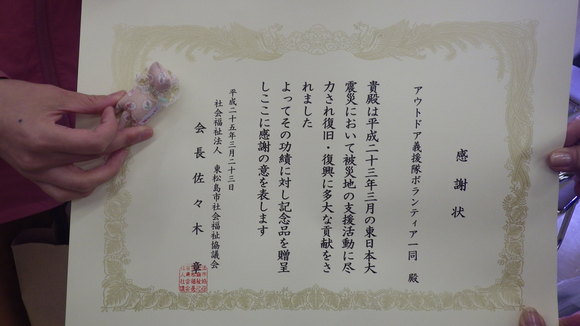 感謝状
アウトドア義援隊ボランティア一同 殿
貴殿は平成二十三年三月の東日本大
震災において被災地の支援活動に尽
力され復旧・復興に多大な貢献をさ
れました
よってその功績に対し記念品を贈呈
しここに感謝の意を表します
平成二十五年三月二十三日
社会福祉法人 東松島市社会福祉協議会
会長 佐々木 章